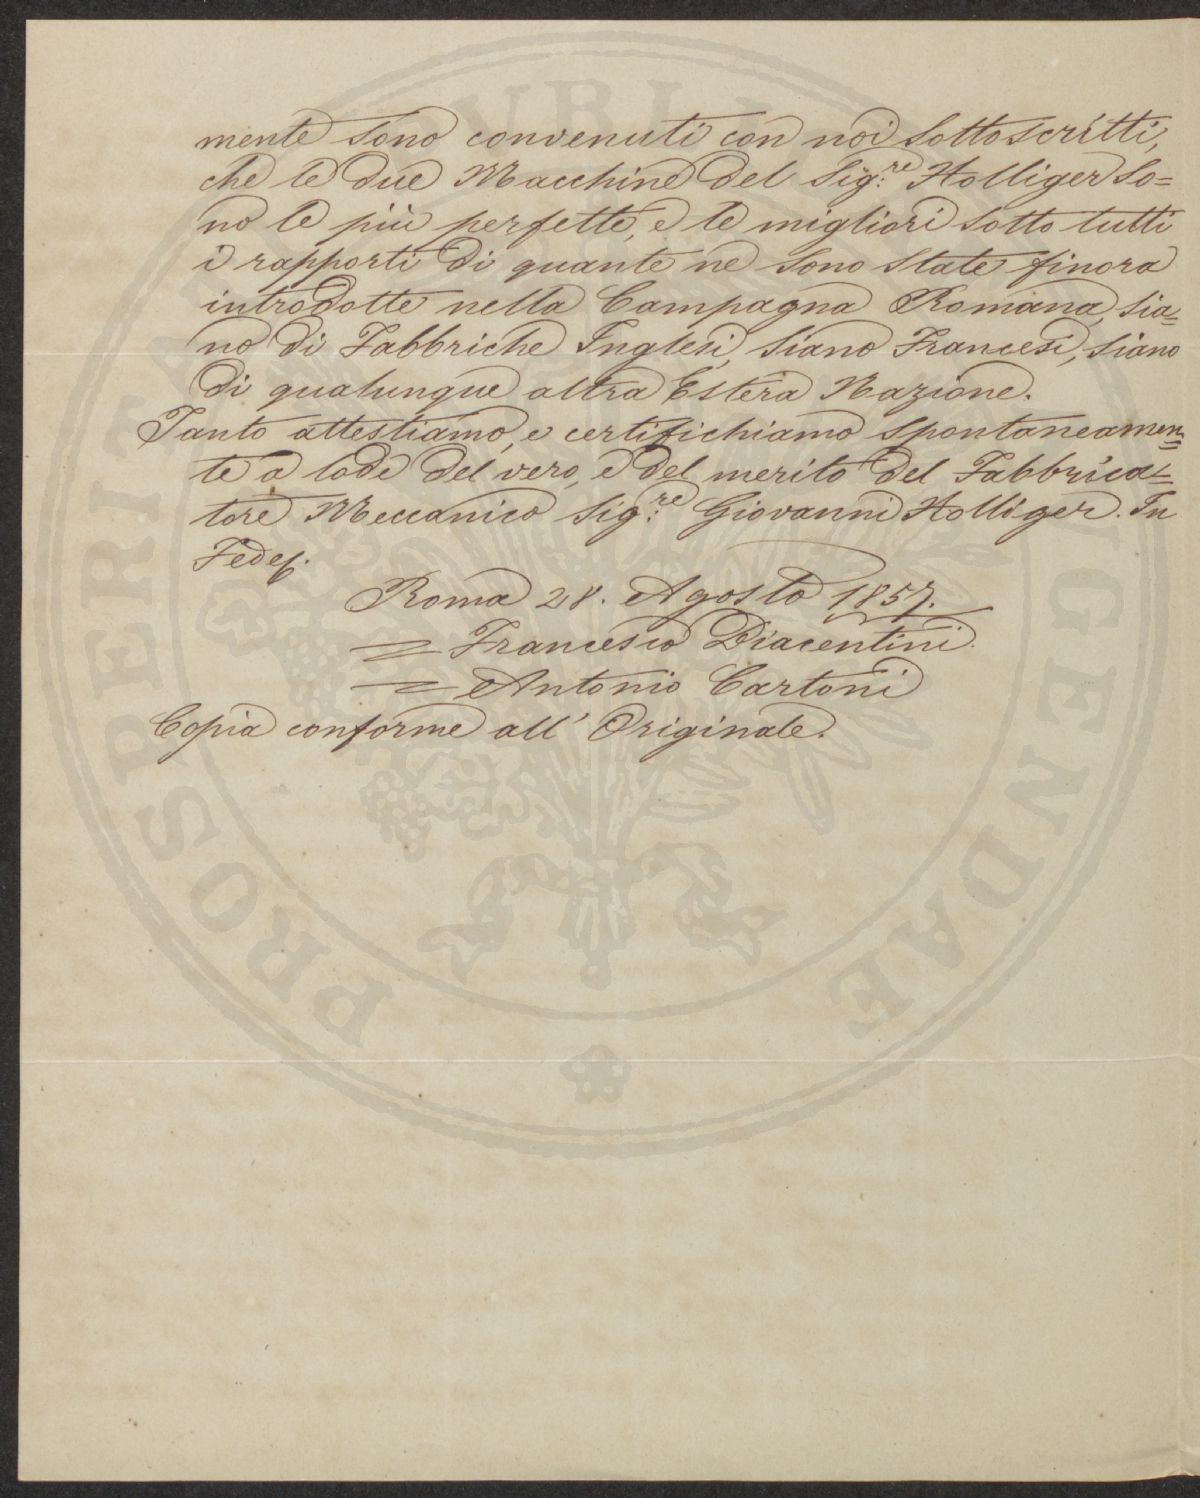 mente sono convenuti con noi sottoscritti,
che le due Macchine del Sig:re Holliger so=
no le più perfette, e le migliori sotto tutti
i rapporti di quante ne sono state finora
introdotte nella Campagna Romana, sia=
no di Fabbriche Inglesi, siano Francesi, siano
di qualunque altra Estera Nazione.
Tanto attestiamo, e certifichiamo spontaneamen=
te a lode del vero, e del merito del Fabbrica=
tore Meccanico Sig:re Giovanni Holliger. In
Fede.
Roma 28. Agosto 1857.
= Francesco Piacentini.
= Antonio Cartoni
Copia conforme all' Originale.